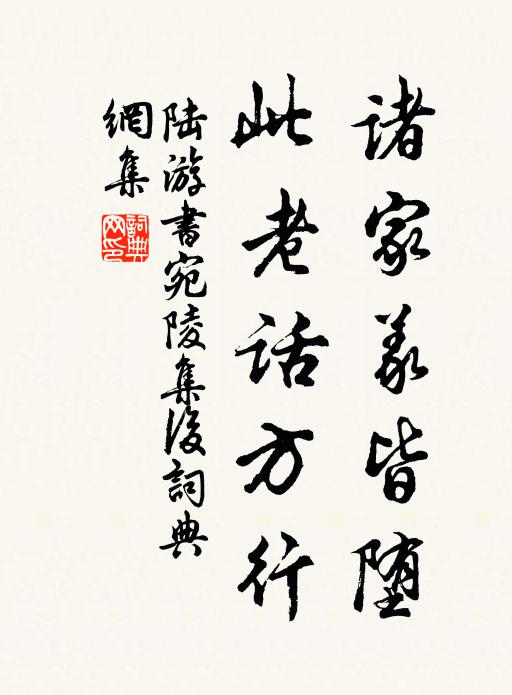 诸家义皆堕
此老话方行
陆游书宛陵集后词典
网集
词典网印